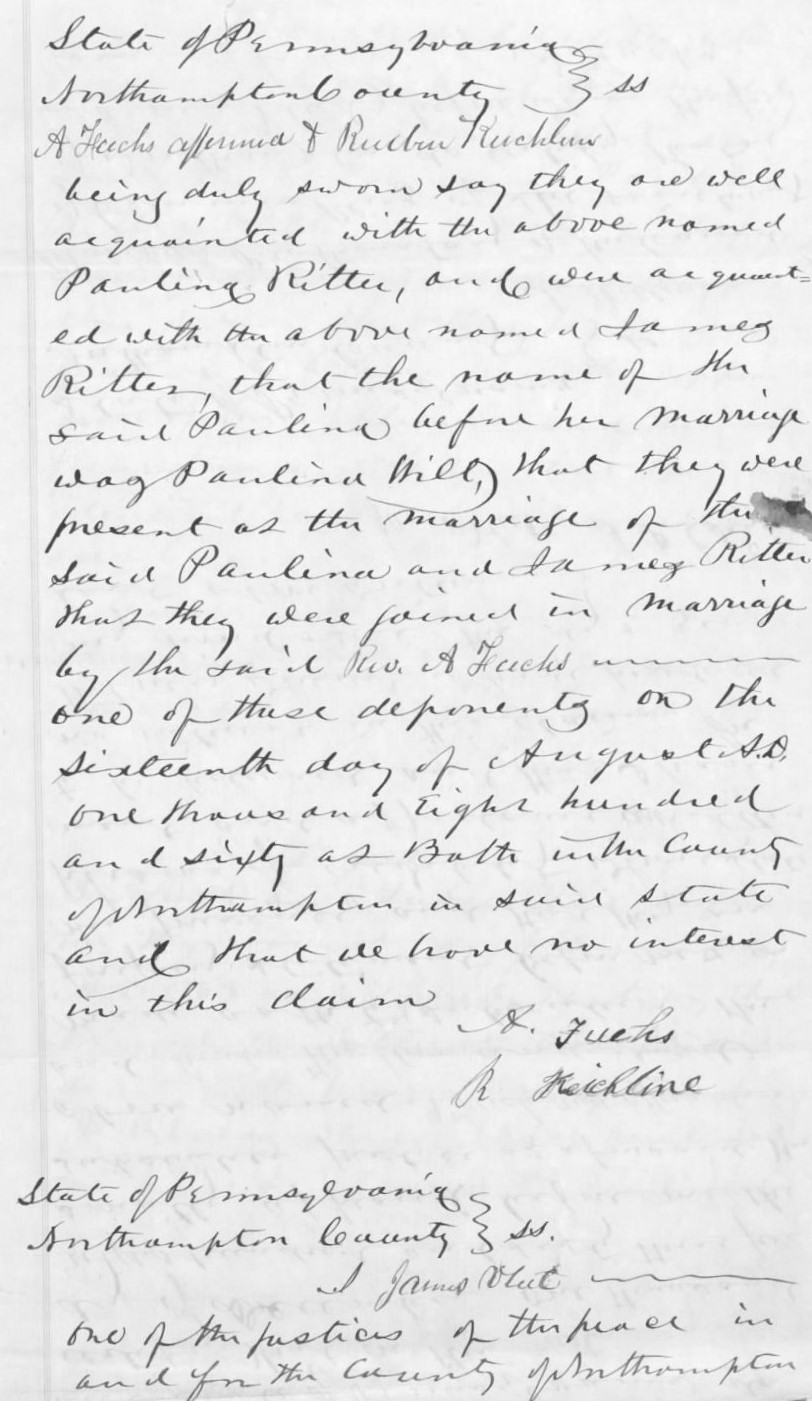 State of Pennsylvania
Northampton County } ss
A Fuchs affirmed & Reuben Keichline
being duly sworn say they are well
acquainted with the above named
Paulina Ritter, and were acquaint=
ed with the above named James
Ritter, that the name of the
said Paulina before her marriage
was Paulina Hill, that they were
present at the marriage of the
said Paulina and James Ritter
that they were joined in marriage
by the said Rev. A Fuchs
one of these deponents on the
sixteenth day of August A.D.
one thousand eight hundred
and sixty at Bath in the County
of Northampton in said State
and that we have no interest
in this claim
A. Fuchs
R Keichline
State of Pennsylvania
Northampton County } ss.
I James Vleit
one of the justices of the peace in
and for the County of Northampton